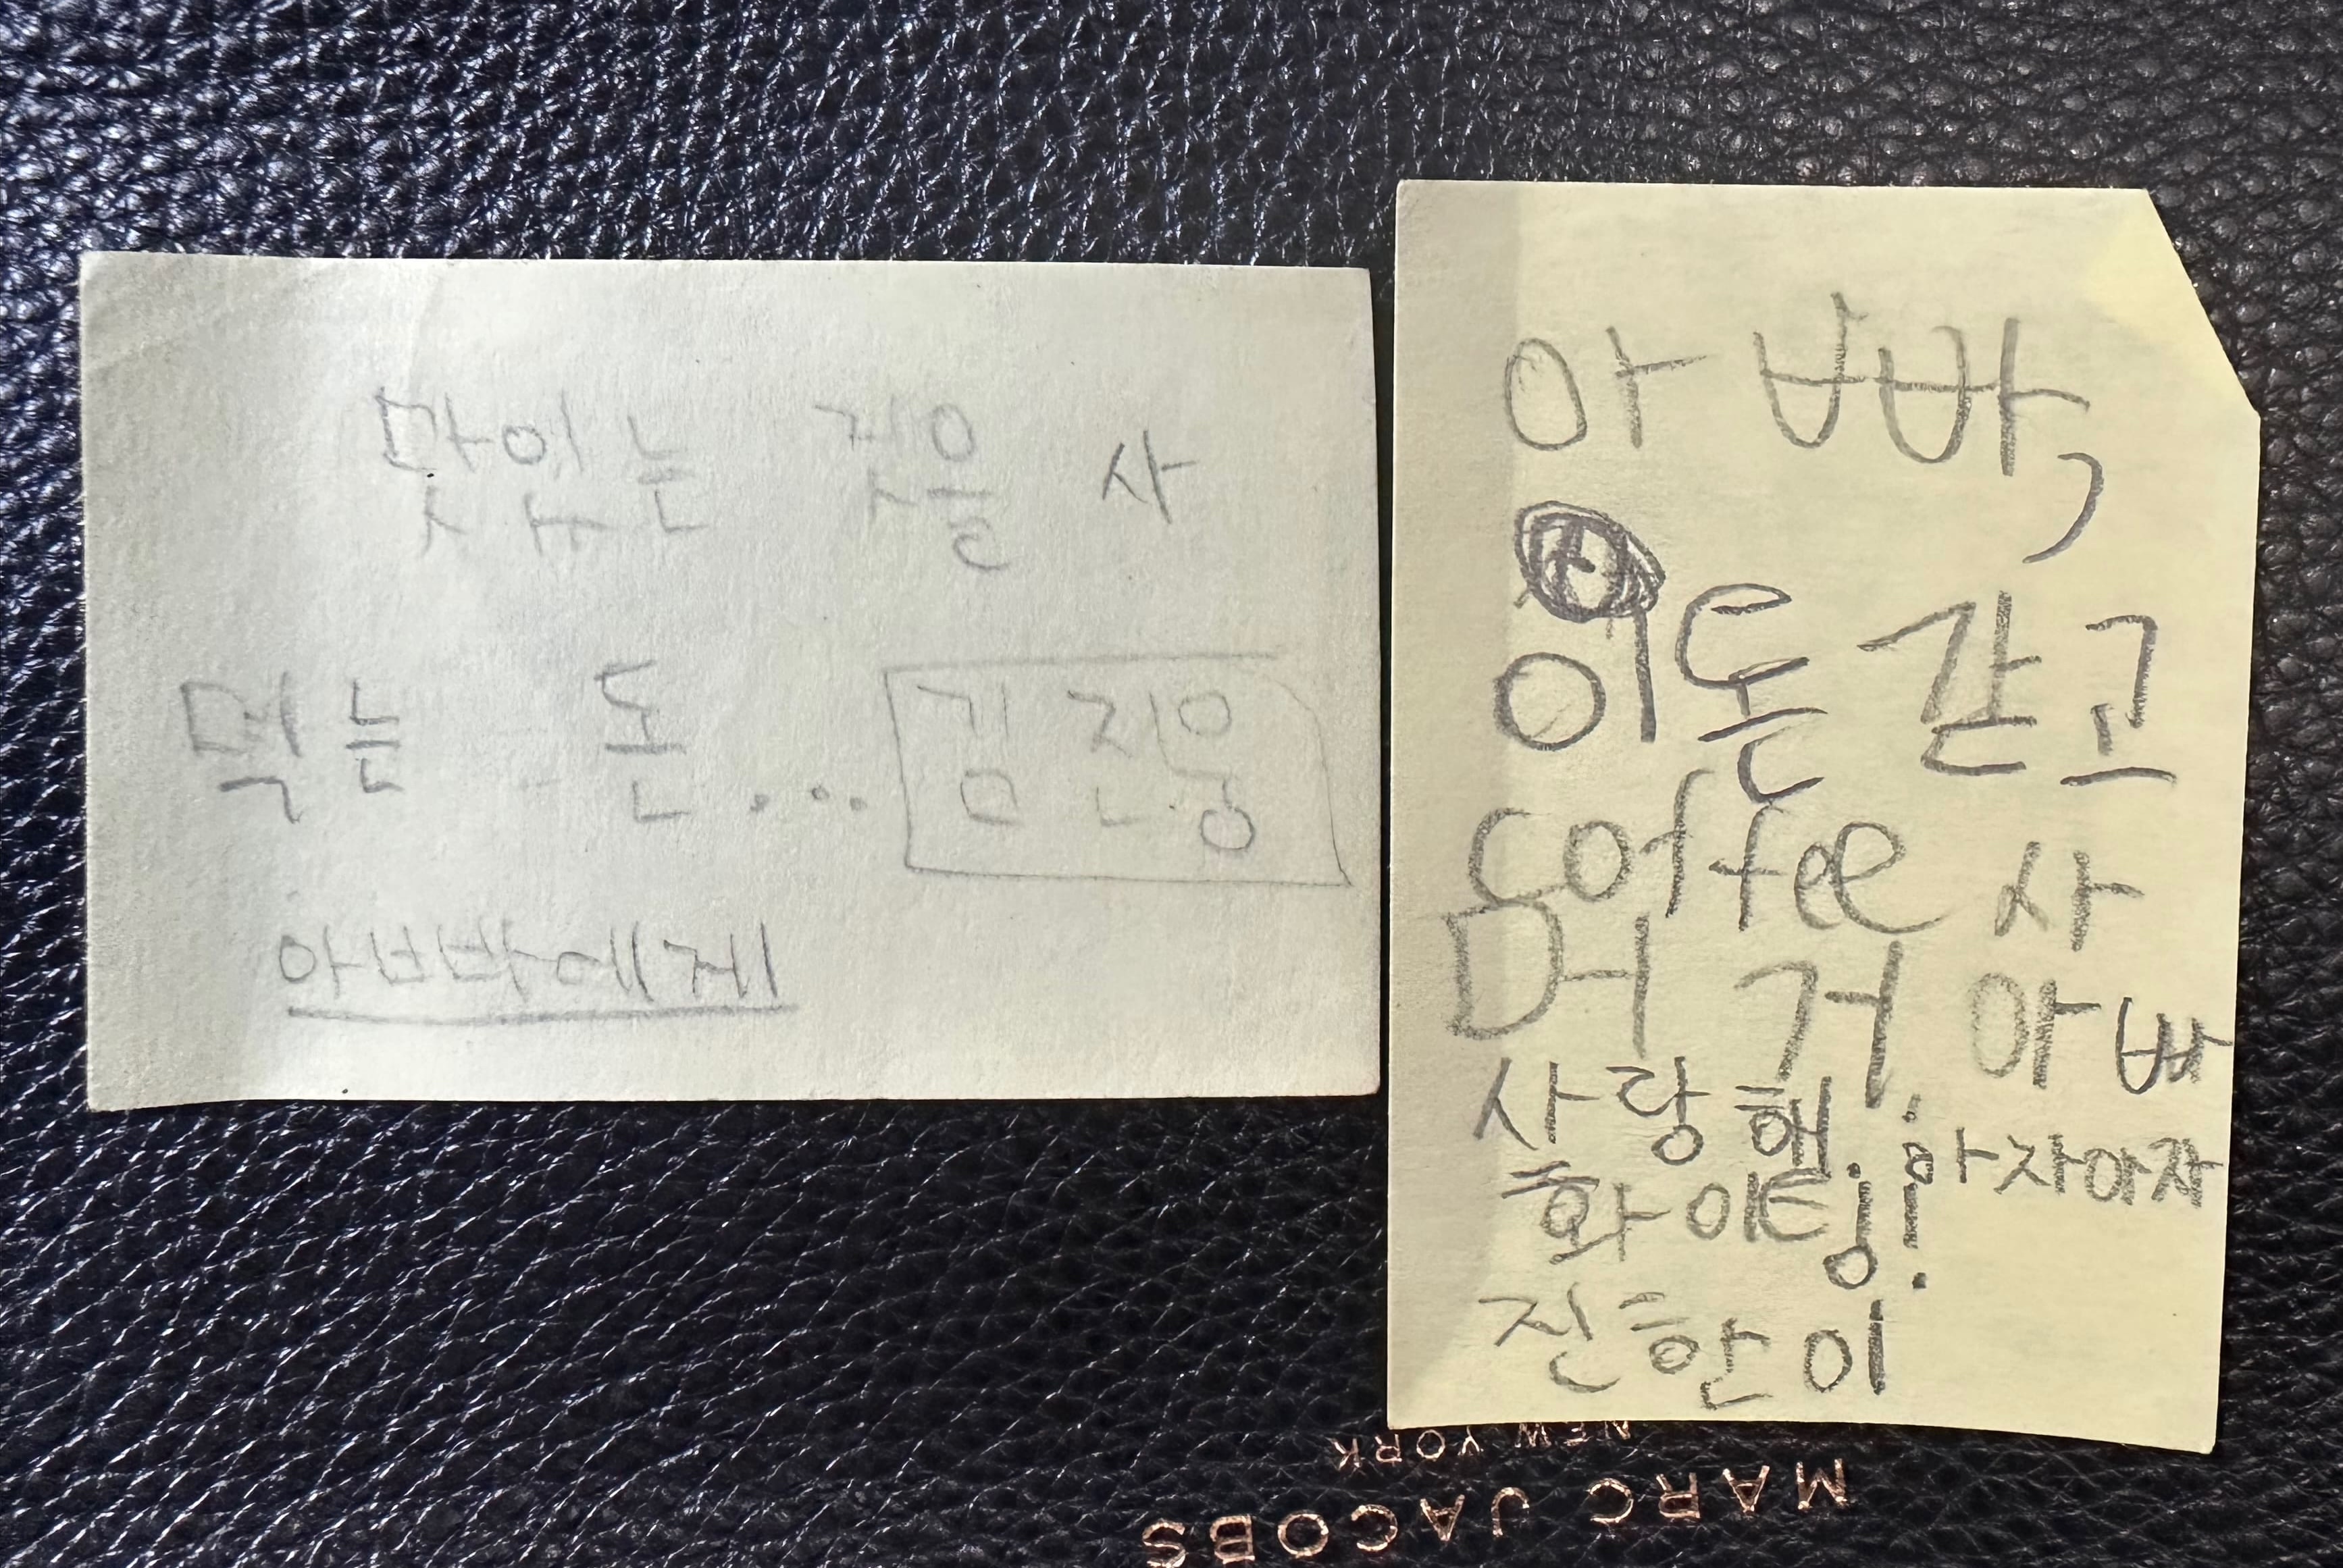 맛있는 것을 사
먹는 돈... 김진웅
아빠에게
아빠,
이돈 갇고
coffee 사
머거 아빠
사랑해! 아자아자
화이팅!!
진한이
MARC JACOBS
NEW YORK